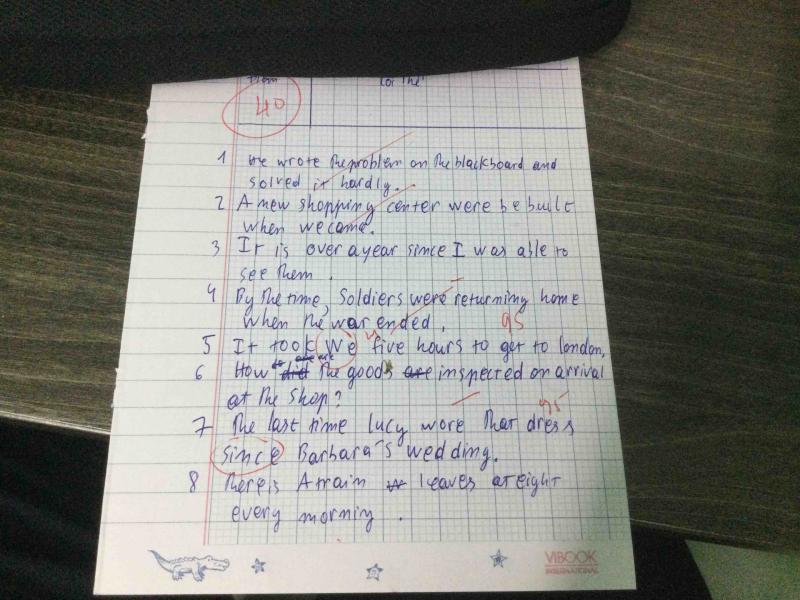 40
1 He wrote the problem on the blackboard and
solved it hardly.
2 A new shopping center were be built
when we came.
3 It is over a year since I was able to
see them.
4 By the time, Soldiers were returning home
when the war ended.
95
5 It took We five hours to get to london.
are
6 How did the goods are inspected on arrival
at the shop?
95
7 The last time lucy wore that dress
since Barbara's wedding.
8 There is A train leaves at eight
every morning.
VIBOOK
INTERNATIONAL